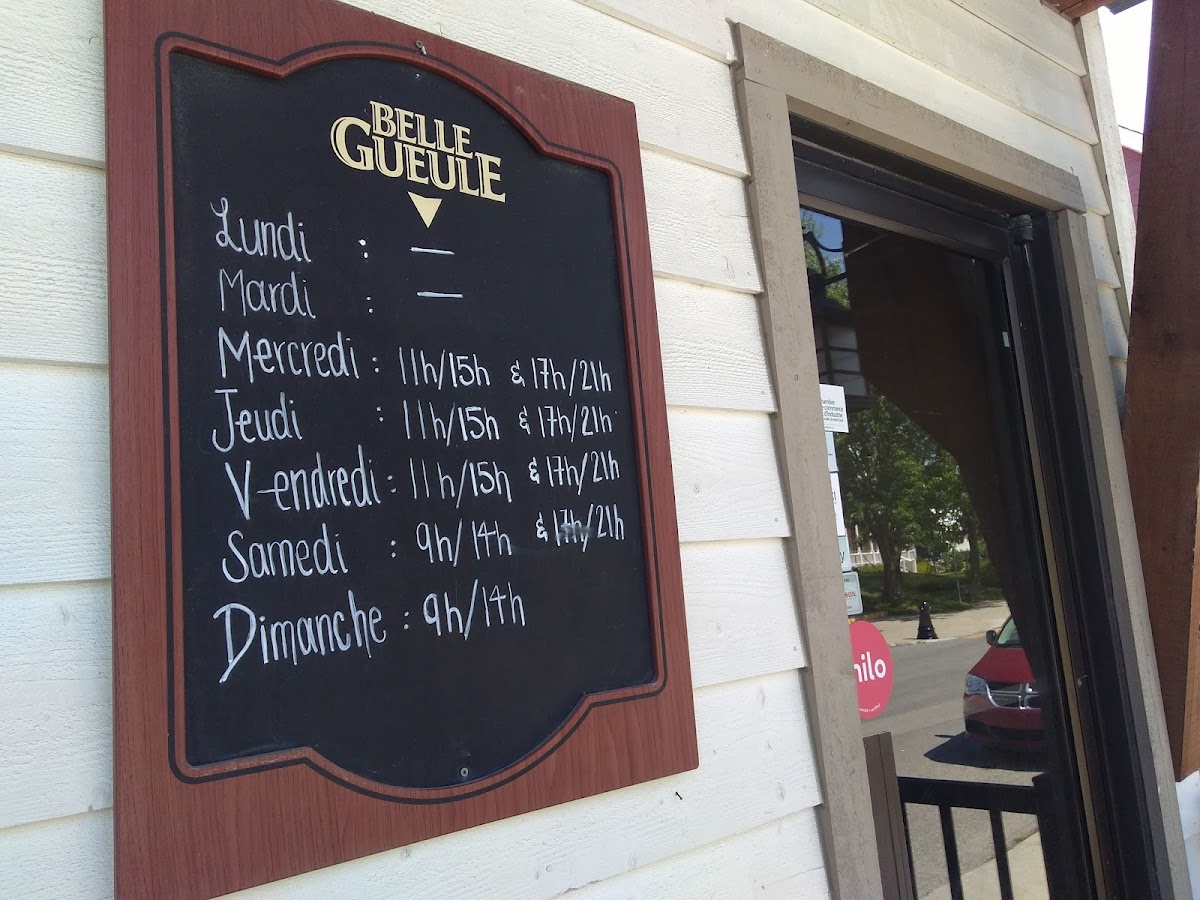 BELLE
GUEULE
Lundi : —
Mardi : —
Mercredi : 11h/15h & 17h/21h
Jeudi : 11h/15h & 17h/21h
Vendredi : 11h/15h & 17h/21h
Samedi : 9h/14h & 17h/21h
Dimanche : 9h/14h